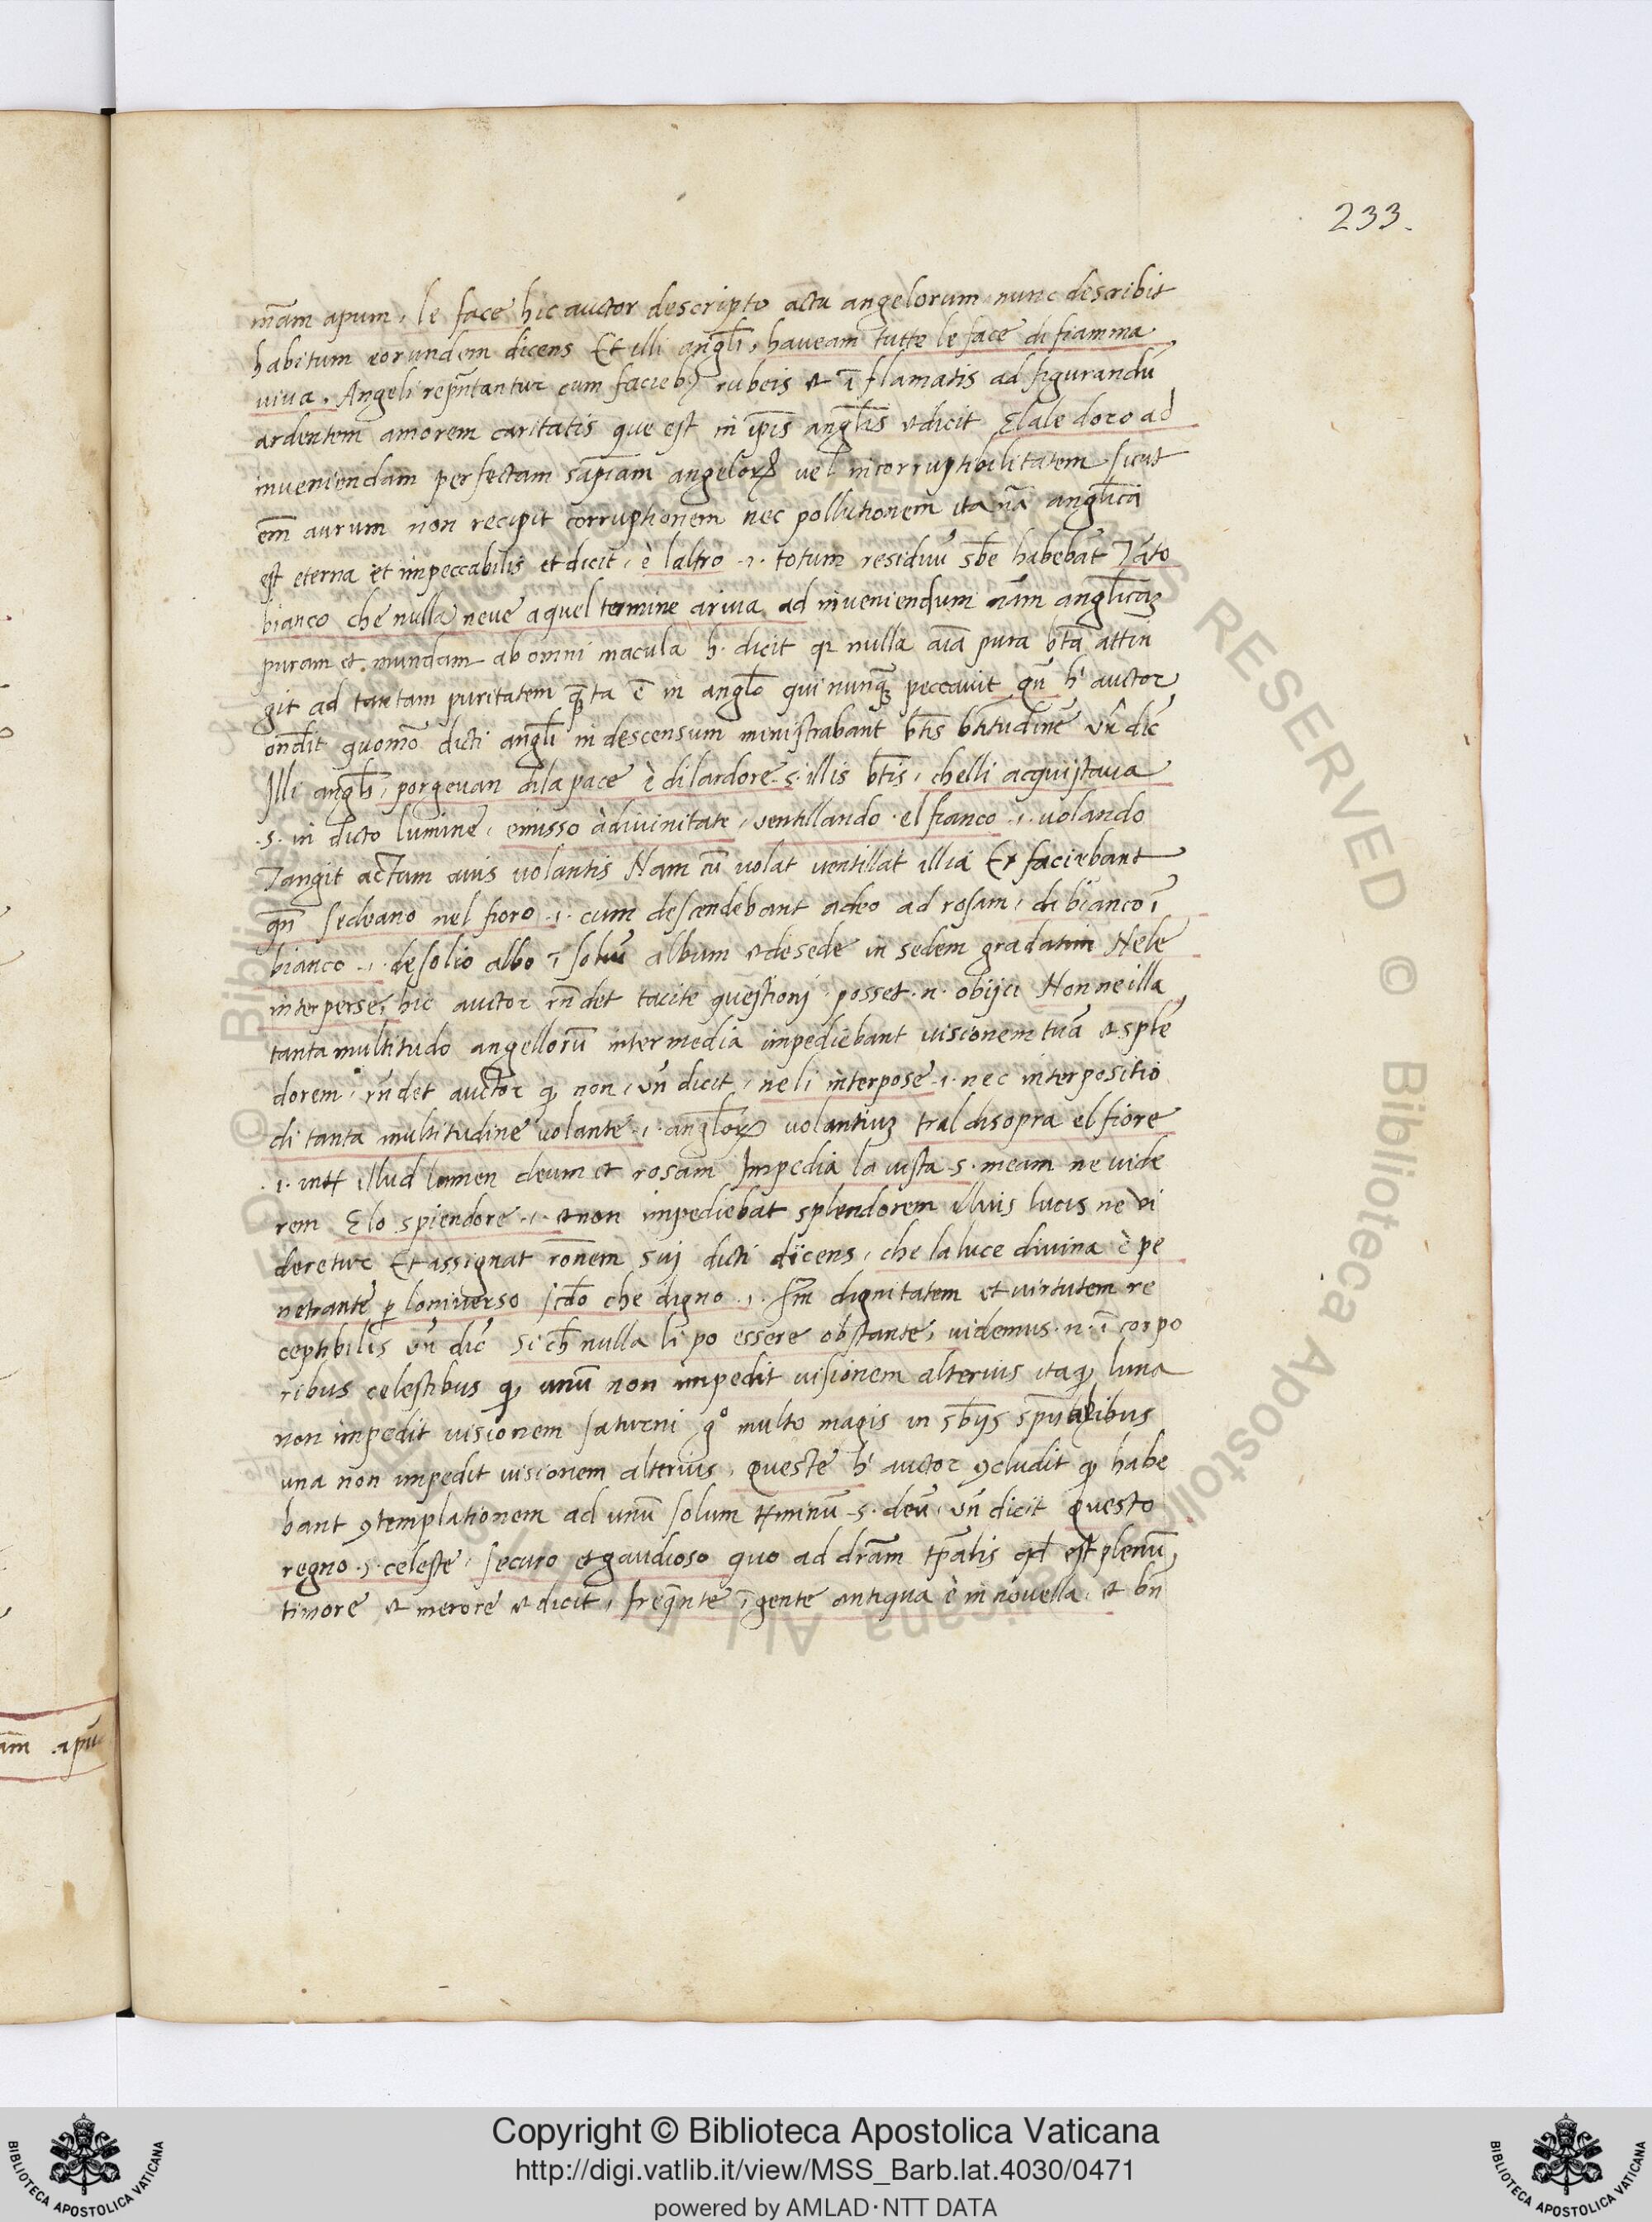 233.
m̄am apum, le face hic auctor descripto actu angelorum nunc describit
habitum eorundem dicens Et illi angl̄i, haveam tutte le face di fiamma
viva. Angeli rep̄ntantur cum facieb; rubeis et ī flamatis ad figurandū
ardentem amorem caritatis que est in ip̄is angl̄is et dicit Elale doro ad
inveniendam perfectam sap̄iam angeloꝝ vel incorruptibilitatem sicut
em̄ aurum non recipit corruptionem nec pollutionem ita nā anglica
est eterna et impeccabilis et dicit, è laltro .i. totum residuū sb̄e habebāt Tāto
bianco che nulla neve aquel termine ariva ad inveniendum nām anglicaz
puram et mundam ab omni macula h. dicit qꝛ nulla aīa pura bt̄a attin
git ad tantam puritatem q̄ta ē in angl̄o qui nunq̄ peccavit qn̄ hͥ auctor
ond̄it quomō dicti angl̄i in descensum ministrabant bt̄is btitudinē vn̄ dic̄
Illi angl̄i, porgevan dila pace è dilardore .s. illis bt̄is, chelli acquistava
.s. in dicto lumine, emisso à divinitate, ventillando el fianco .i. volando
Tangit actum avis volantis Nam cū volat ventillat illia Et faciebant
qn̄ sedeano nel fioro .i. cum descendebant adeo ad rosam, di bianco ī
bianco .i. de solio albo ī soliū album et de sede in sedem gradatim Nele
interperse, hic auctor rn̄det tacite questioni posset .n. obijci Nonne illa
tanta multitudo angellorū intermedia impediebant visionem tuā et splē
dorem, rn̄det auctor ꝙ non, vn̄ dicit, ne li interpose .i. nec interpositio
di tanta multitudine volante .i. angloꝝ volantiuz tral disopra el fiore
.i. int̄ illud lumen deum et rosam Impedia la vista .s. meam ne vide
rem Elo spiendore .i. et non impediebat splendorem illuis lucis ne vi
deretur Et assignat rōnem sui dicti dicens, che la luce divina è pe
netrante p̱ loniverso scd̄o che digno .i. fm̄ dignitatem et virtutem re
ceptibilis vn̄ dic̄ Si ch̄ nulla li po essere obstante, videmus .n. ī corpo
ribus celestibus ꝙ unū non impedit visionem alterius itaꝙ luna
non impedit visionem saturni gͦ multo magis in sb̄ijs sp̄ualibus
una non impedit visionem alterius, Queste hͥ auctor ꝯcludit ꝙ habe
bant ꝯtemplationem ad unū solum tminū .s. deū, vn̄ dicit Questo
regno .s. celeste, securo et gaudioso quo ad dr̄am tp̄alis qd̄ est plenū
timore et merore et dicit, freq̄nte ī gente antiqua è in novella, et bn̄
am apū
Copyright © Biblioteca Apostolica Vaticana
http://digi.vatlib.it/view/MSS_Barb.lat.4030/0471
powered by AMLAD·NTT DATA
BIBLIOTECA APOSTOLICA VATICANA
BIBLIOTECA APOSTOLICA VATICANA